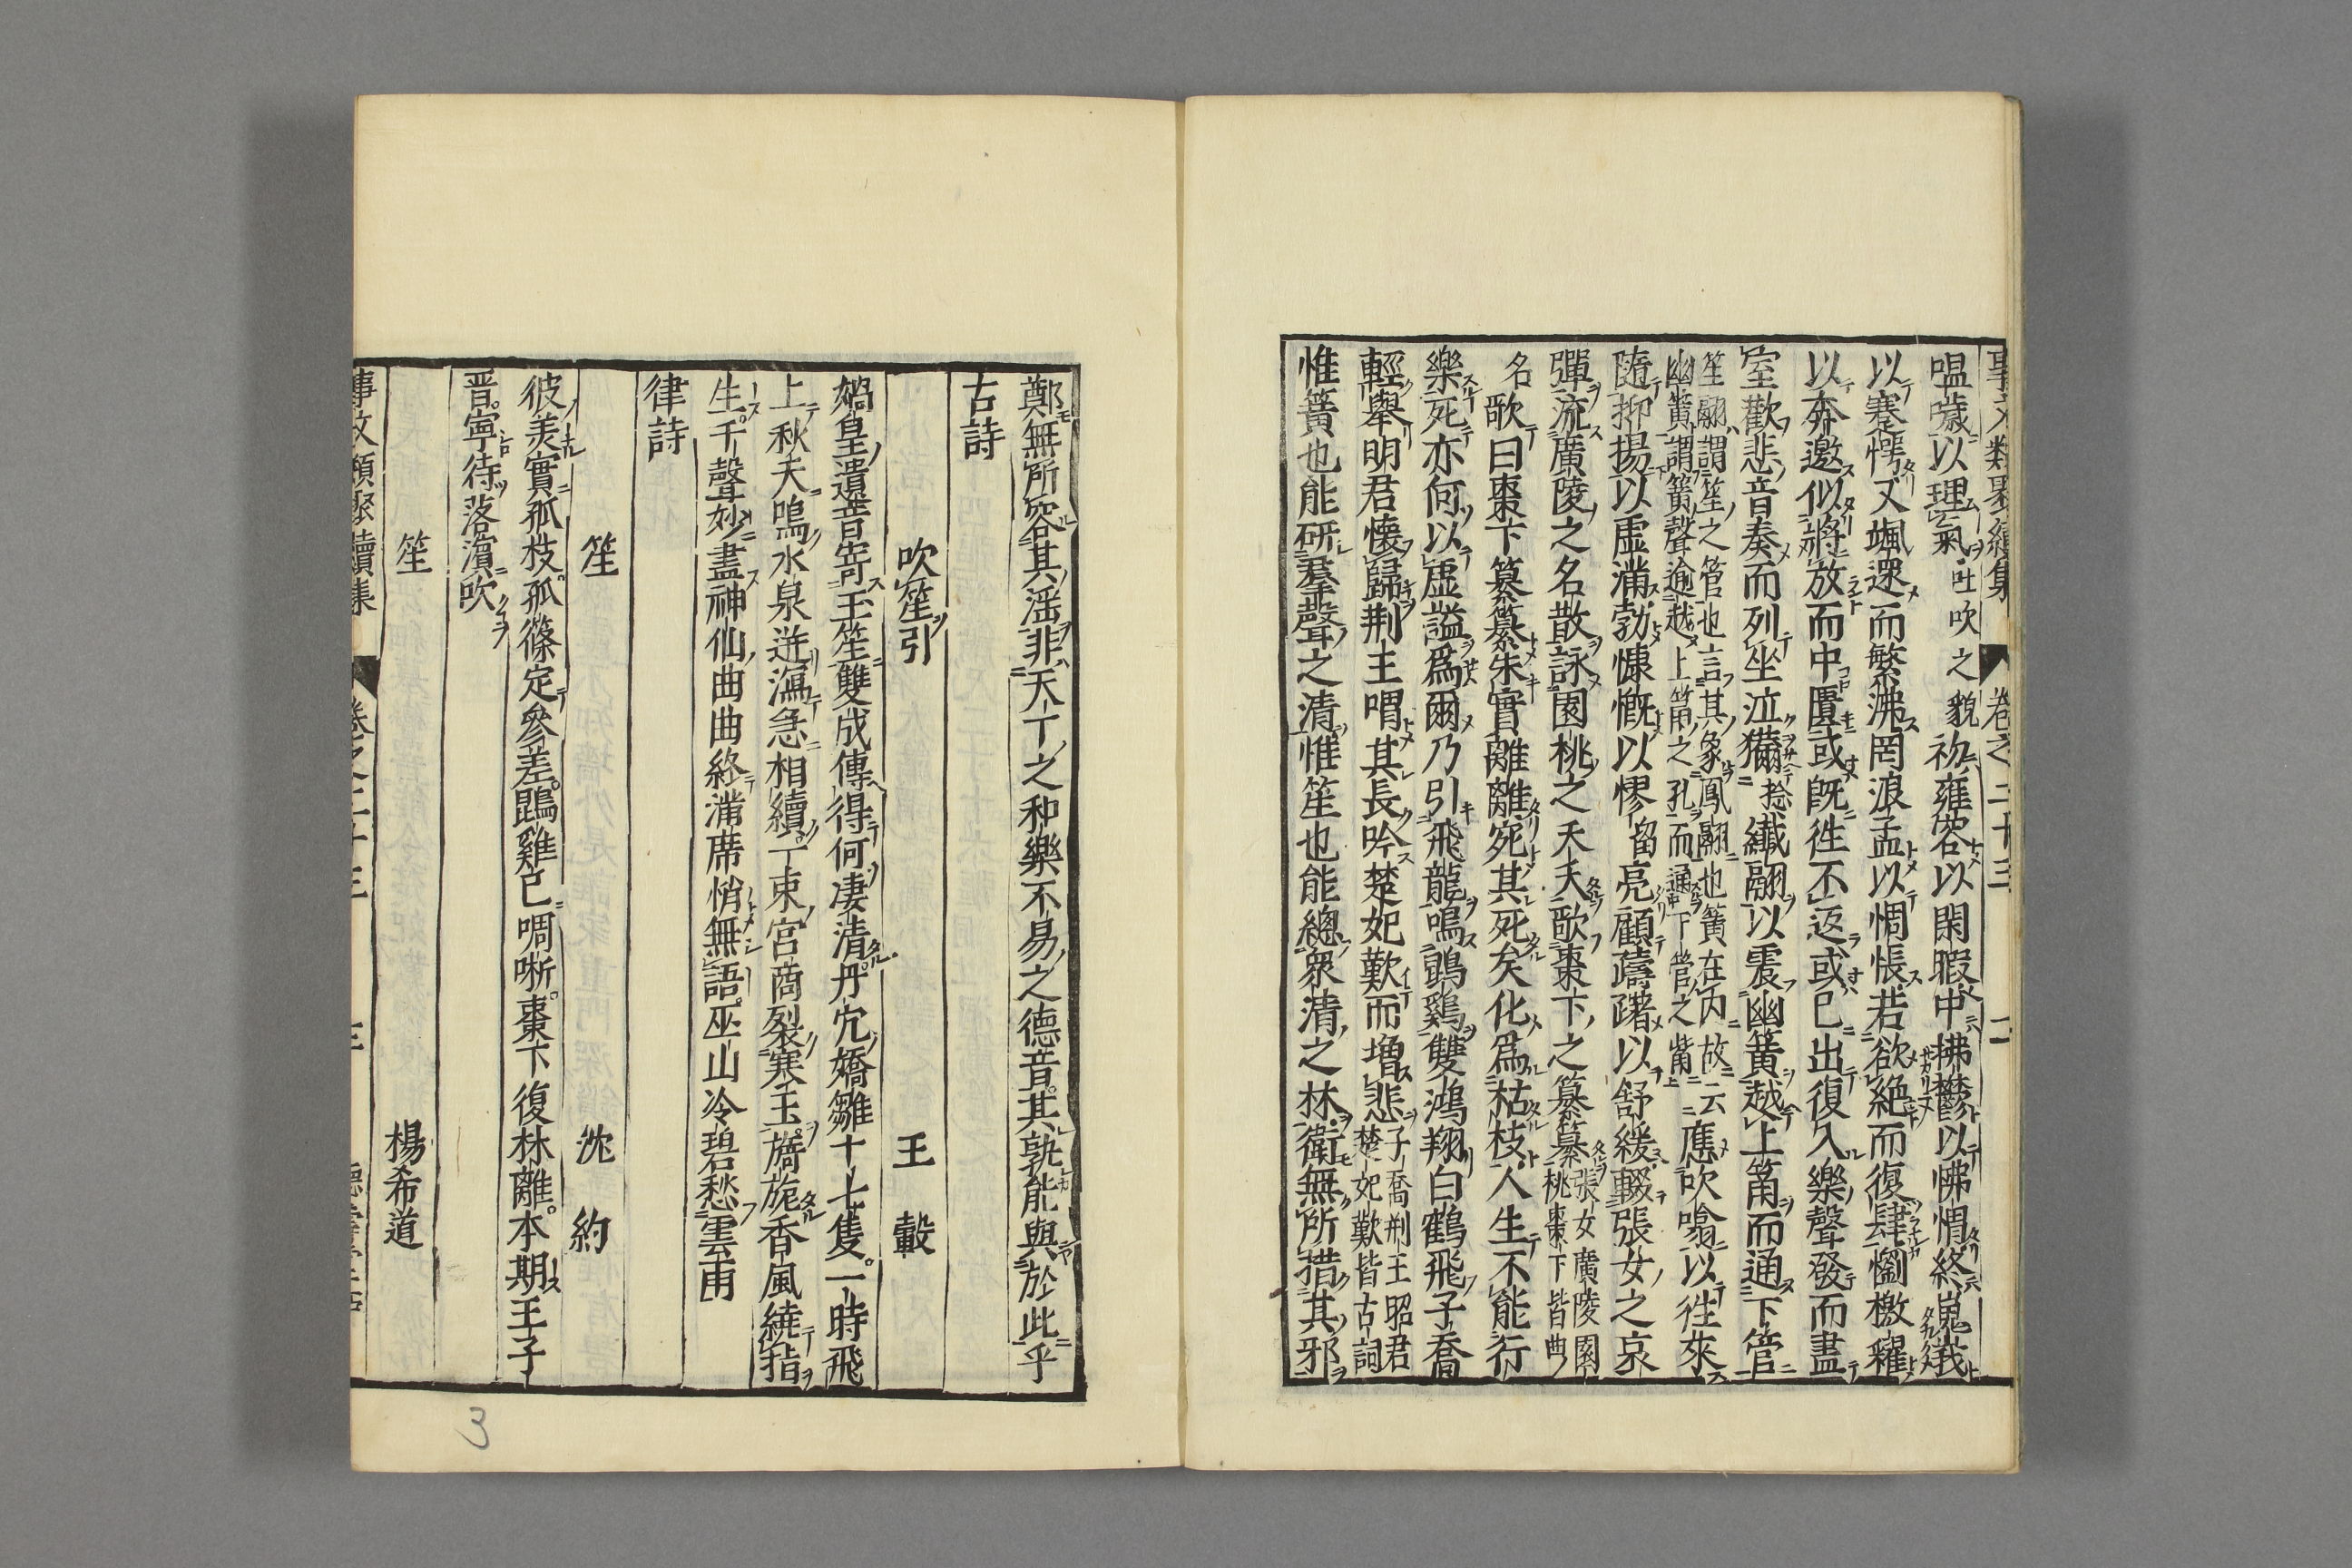 事文類聚續集 卷之二十三 二
嗢噦以理氣吐吹之貌初雍容以閑暇中拂鬱以怫愲終嵬峩
以蹇愕又颯遝而繁沸罔浪孟以惆悵若欲絶而復肆懰檄糴
以奔邀似將放而中匱或旣徃不返或已出復入樂聲發而盡
室歡悲音奏而列坐泣擫捻纖翮以震幽簧越上筩而通下管
笙翮謂笙之管也言其象鳳翮也簧在內故云
幽簧謂簧聲逾越上筩之孔而通下管之觜
應吹噏以徃來
隨抑揚以虛滿勃慷慨以憀留亮顧躊躇以舒緩輟張女之哀
彈流廣陵之名散詠園桃之夭夭歌棗下之纂纂張女廣陵園
桃棗下皆曲
名歌曰棗下纂纂朱實離離宛其死矣化爲枯枝人生不能行
樂死亦何以虛謚爲爾乃引飛龍鳴鵾鷄雙鴻翔白鶴飛子喬
輕舉明君懷歸荆王喟其長吟楚妃歎而增悲子喬荆王昭君
楚妃歎皆古詞
惟簧也能研羣聲之清惟笙也能總衆清之林衛無所措其邪
鄭無所容其滛非天下之和樂不易之德音其孰能與於此乎
古詩
吹笙引 王轂
媧皇遺音寄玉笙雙成傳得何凄清丹穴嬌雛十七隻一時飛
上秋天鳴水泉迸瀉急相續一束宮商裂寒玉旖旎香風繞指
生千聲妙盡神仙曲曲終滿席悄無語巫山冷碧愁雲雨
律詩
笙 沈約
彼美實孤枝孤篠定參差鵾雞已啁哳棗下復林離本期王子
晋寧待落濵吹
笙 楊希道
事文類聚續集 卷之二十三 三